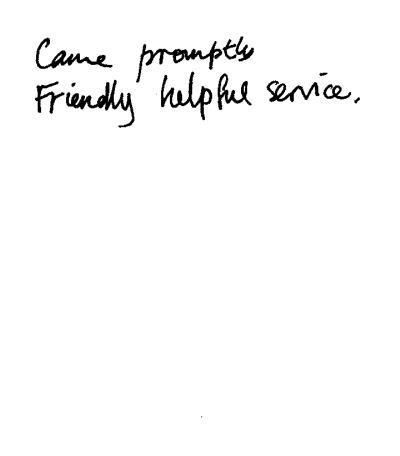 Came promptly
Friendly helpful service.